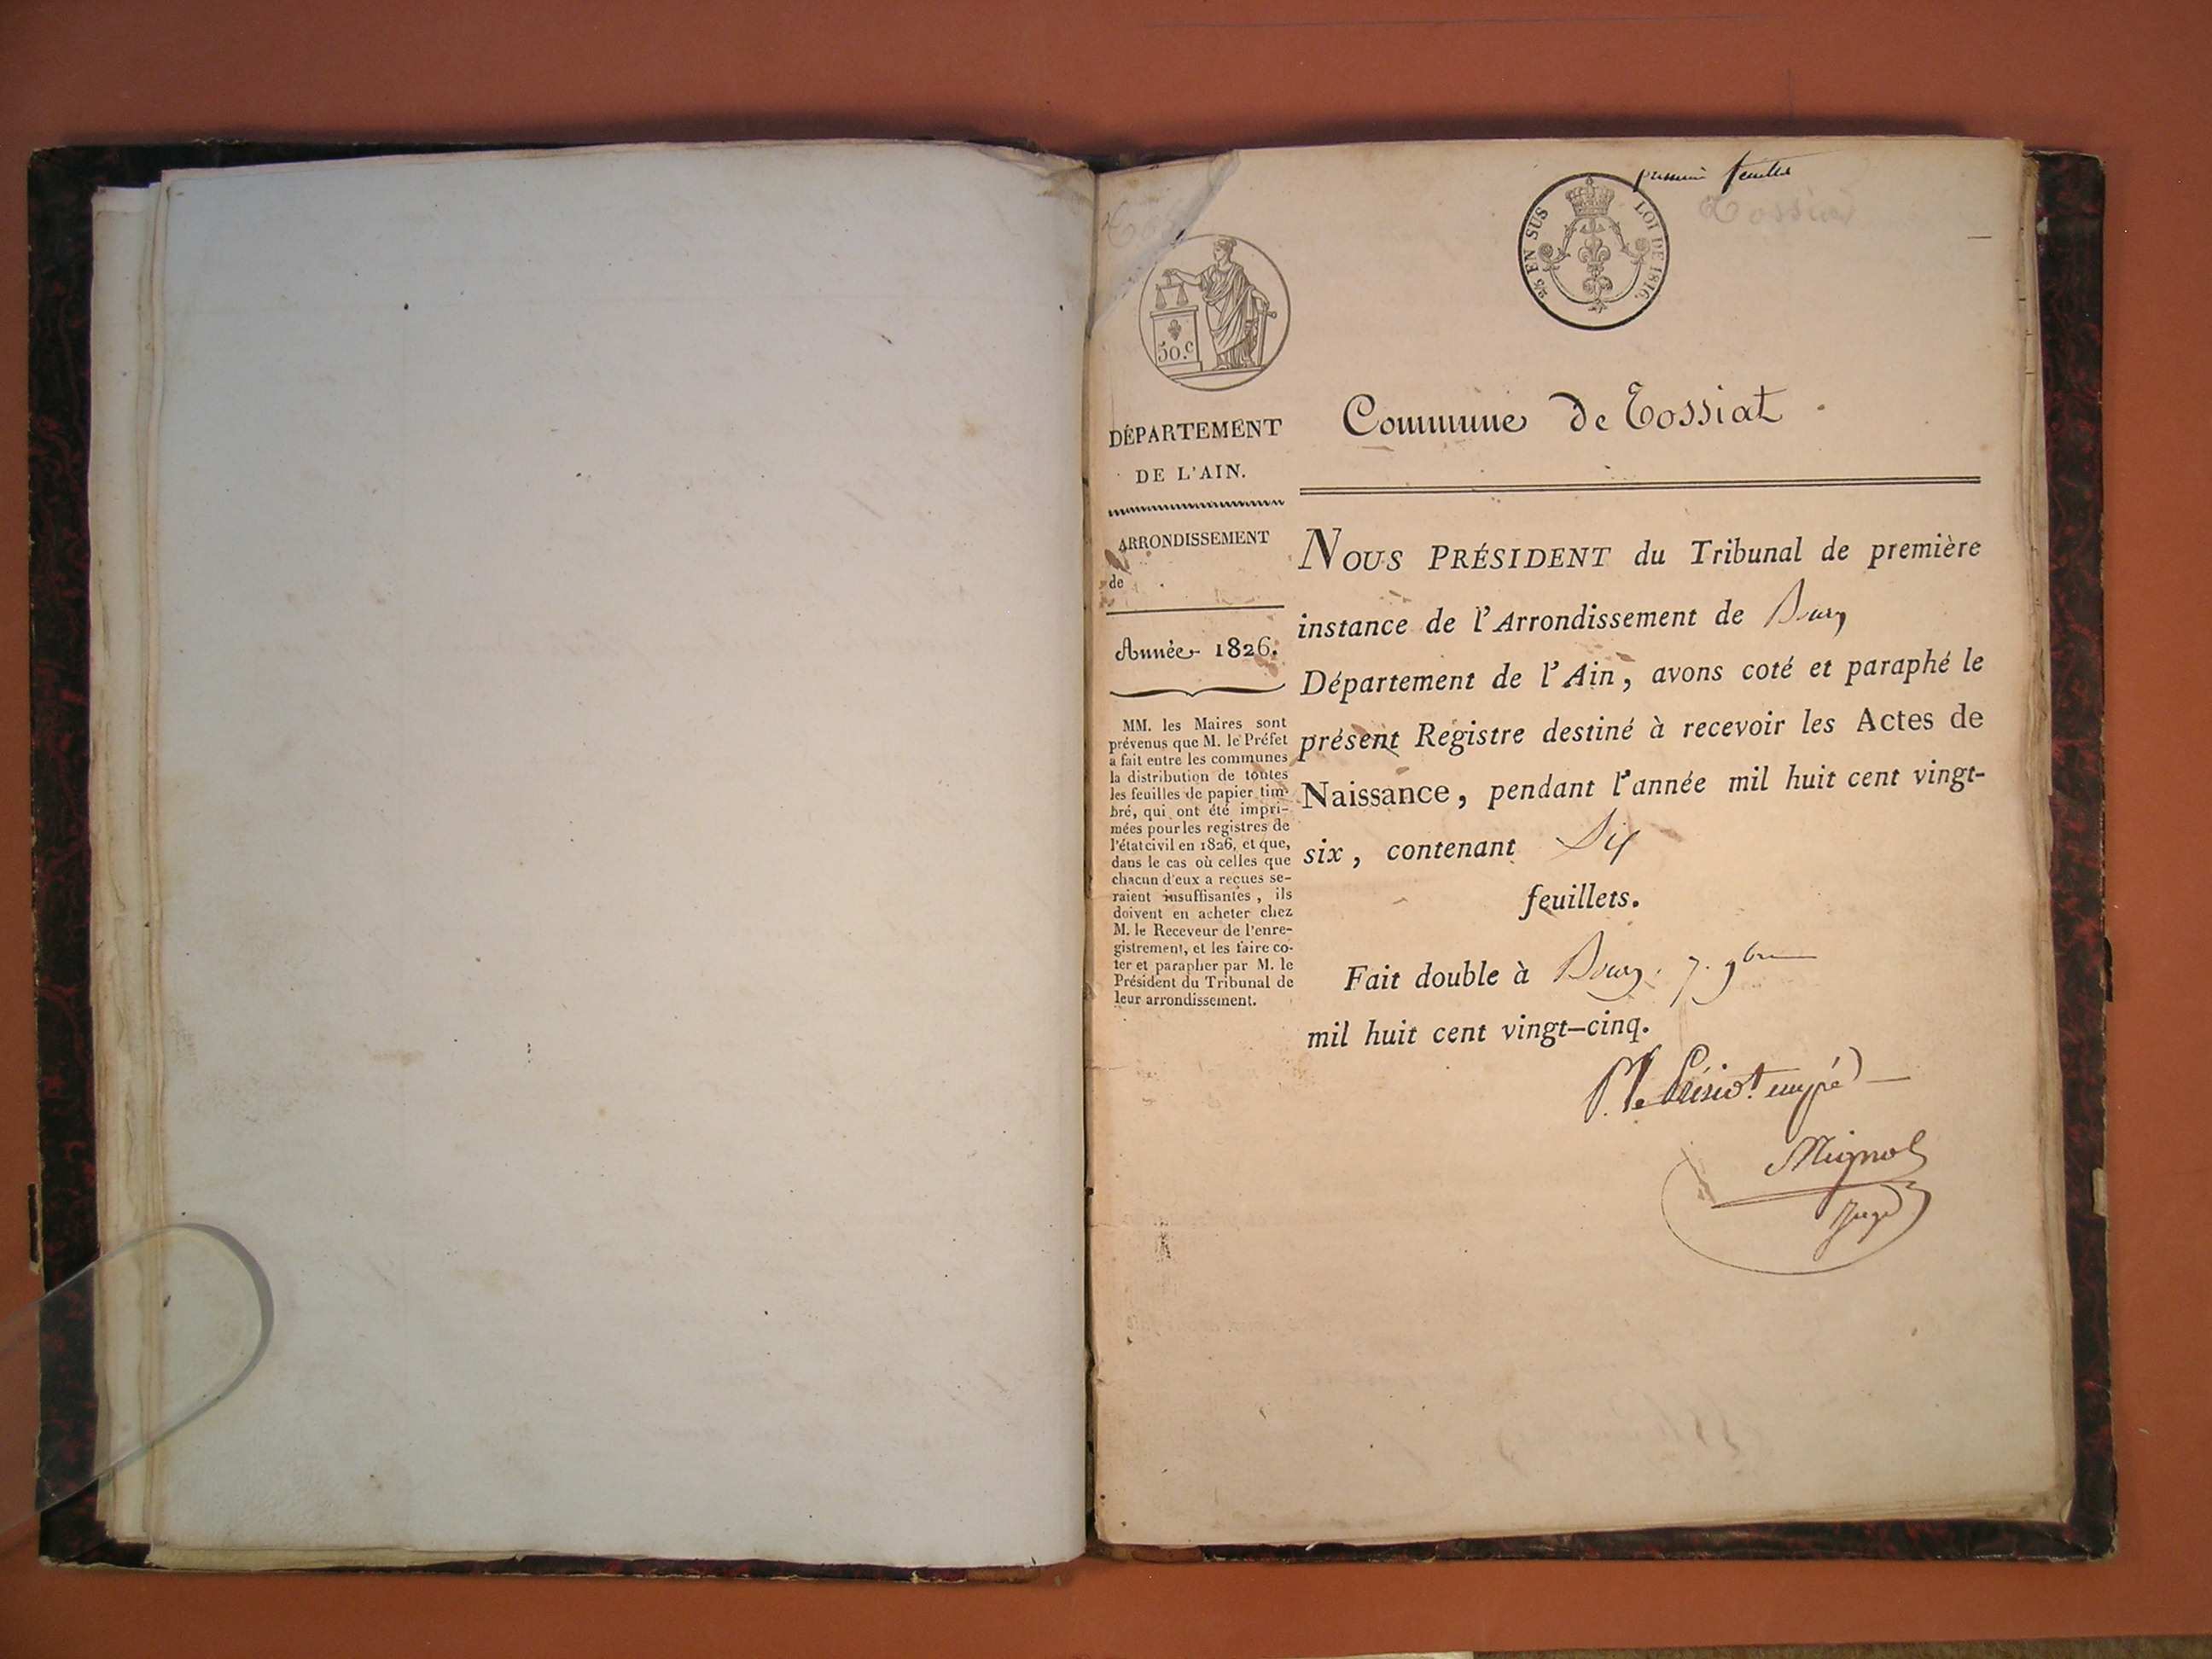 premier feuillet
Tossiat
2/5 EN SUS LOI DE 1816.
50.c
DÉPARTEMENT
DE L'AIN.
ARRONDISSEMENT
de
Année 1826.
MM. les Maires sont
prévenus que M. le Préfet
a fait entre les communes
la distribution de toutes
les feuilles de papier tim-
bré, qui ont été impri-
mées pour les registres de
l'état civil en 1826, et que,
dans le cas où celles que
chacun d'eux a reçues se-
raient insuffisantes, ils
doivent en acheter chez
M. le Receveur de l'enre-
gistrement, et les faire co-
ter et parapher par M. le
Président du Tribunal de
leur arrondissement.
Commune de Tossiat
NOUS PRÉSIDENT du Tribunal de première
instance de l'Arrondissement de Bourg
Département de l'Ain, avons coté et paraphé le
présent Registre destiné à recevoir les Actes de
Naissance, pendant l'année mil huit cent vingt-
six, contenant
feuillets.
Fait double à Bourg. 7. 9bre
mil huit cent vingt-cinq.
P. le Présidt. empé
Mignot
Juge